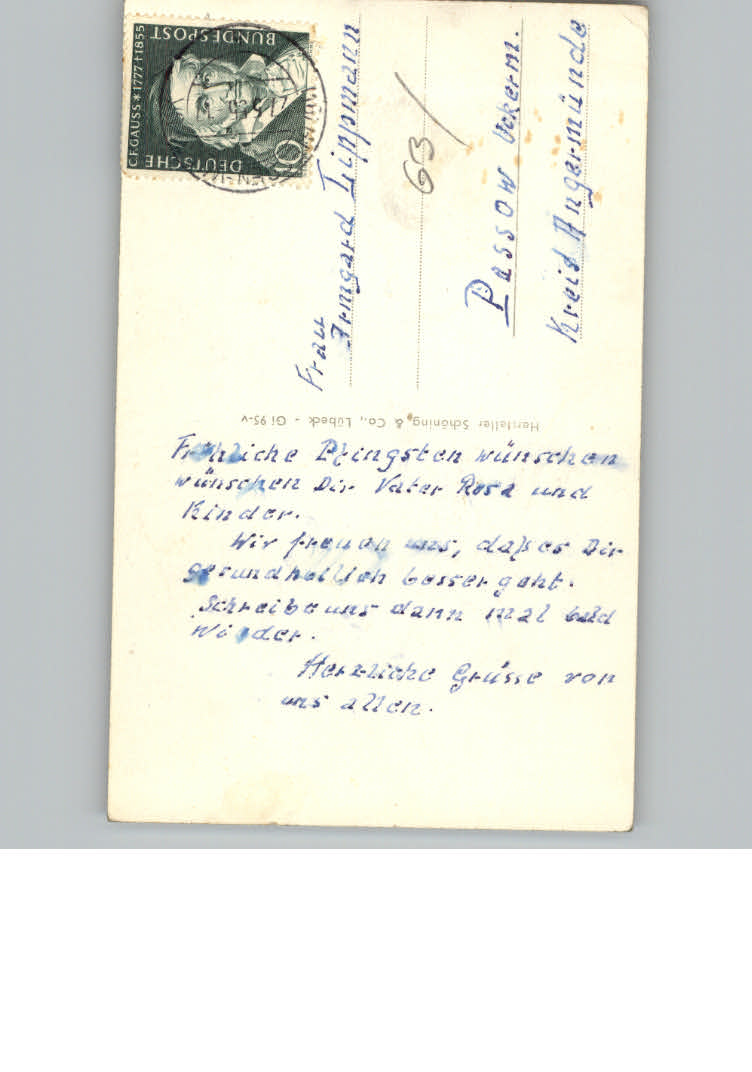 C.F.GAUSS * 1777 † 1855
DEUTSCHE
BUNDESPOST
10
Frau
Irmgard Lippmann
63
Passow Uckerm.
Kreis Angermünde
Hersteller Schöning & Co., Lübeck - Gi 95-v
Fröhliche Pfingsten wünschen
wünschen Dir Vater Rosa und
Kinder.
Wir freuen uns, daß es Dir
gesundheitlich besser geht.
Schreibe uns dann mal bald
wieder.
Herzliche Grüsse von
uns allen.